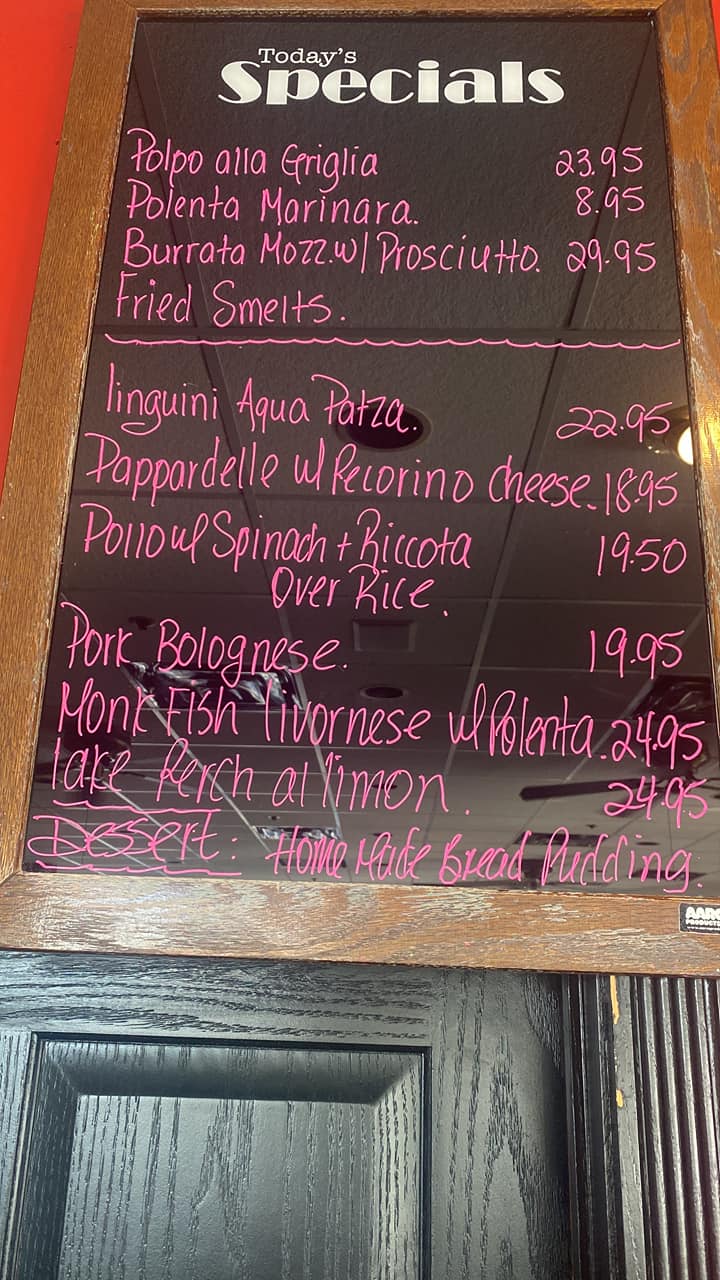 Today's
Specials
Polpo alla Griglia 23.95
Polenta Marinara. 8.95
Burrata Mozz. w/ Prosciutto. 29.95
Fried Smelts.
linguini Aqua Patza. 22.95
Pappardelle w/ Pecorino cheese. 18.95
Pollo w/ Spinach + Riccota 19.50
Over Rice.
Pork Bolognese. 19.95
Monk Fish livornese w/ Polenta. 24.95
lake Perch al limon. 24.95
Dessert: Home Made Bread Pudding.